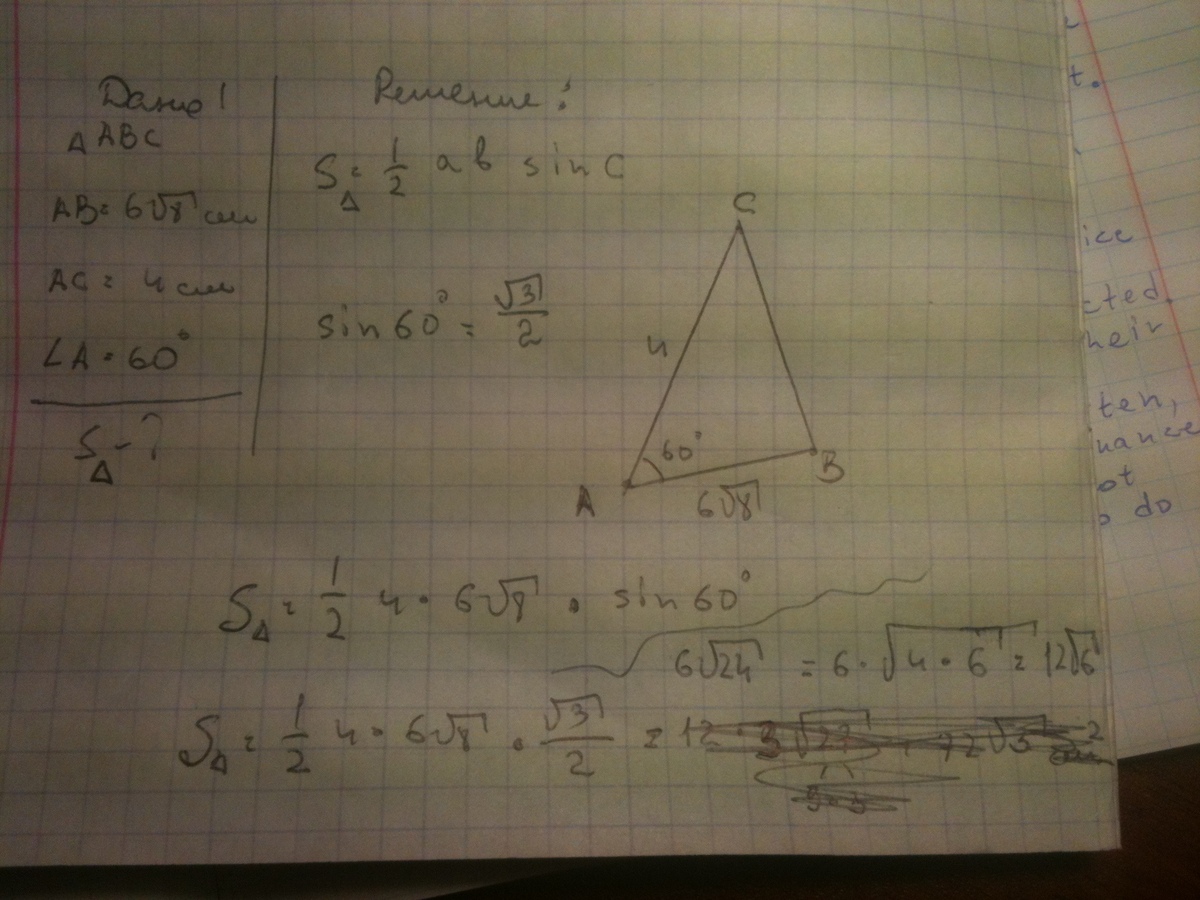 Дано!
Δ ABC
AB = 6√8 см
AC = 4 см
∠A = 60°
S Δ - ?
Решение:
S Δ = 1/2 a b sin C
sin 60° = √3/2
C
4
60°
A
B
6√8
S Δ = 1/2 4 · 6√8 · sin 60°
6√24 = 6 · √4 · 6 = 12√6
S Δ = 1/2 4 · 6√8 · √3/2 = 12
ice
cted.
heir
ten,
nance
ot
do